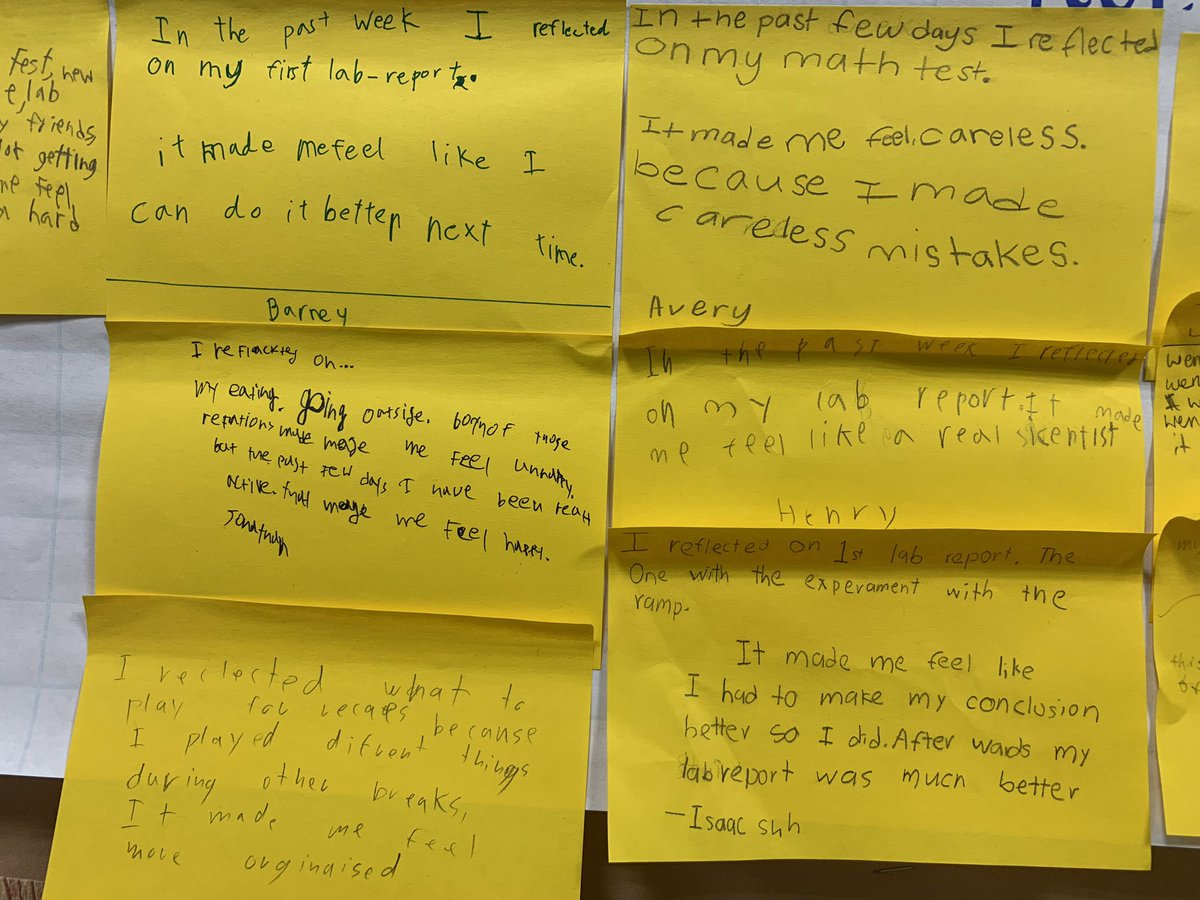 Test, new
e, lab
y friends,
lot getting
me feel,
a hard
In the past week I reflected
on my first lab-report.
it made me feel like I
can do it better next time.
Barney
I reflackted on...
My eating. going outside. both of those
me feel
but the past few days I have been
active. that me feel happy.
Jonathan
I reclected what to
play for because
I played difrent things
during other breaks,
It made me feel
more orginaised
In the past few days I reflected
on my math test.
It made me feel careless.
because I made
careless mistakes.
Avery
In the past week I reflected
on my lab report. It made
me feel like a real skentist
Henry
I reflected on 1st lab report. The
One with the experament with the
ramp.
It made me feel like
I had to make my conclusion
better so I did. After wards my
lab report was much better
-Isaac suh
wen
wen
wen
it